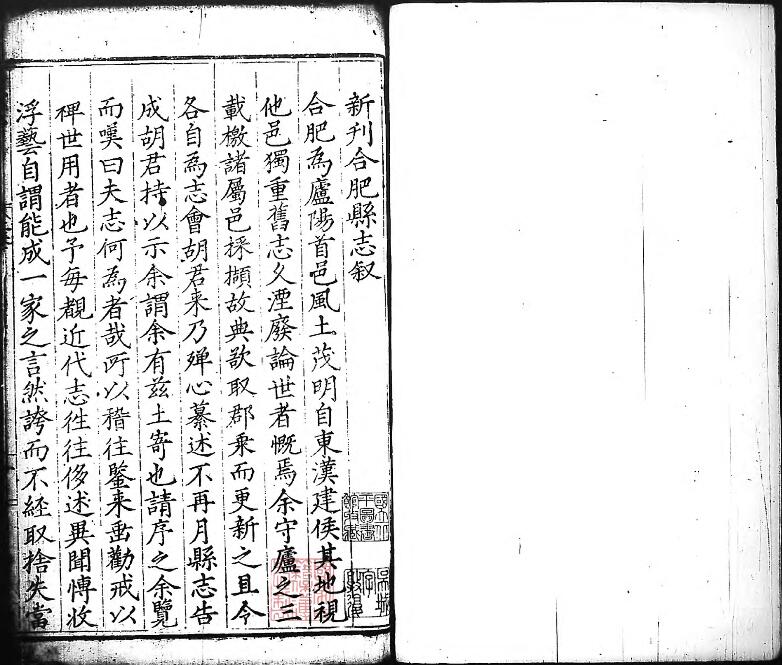 新刊合肥縣志叙
合肥為廬陽首邑風土茂明自東漢建侯其地視
他邑獨重舊志久湮廢論世者慨焉余守廬之三
載檄諸屬邑採擷故典欲取郡乗而更新之且令
各自為志會胡君来乃殫心纂述不再月縣志告
成胡君持以示余謂余有兹土寄也請序之余覽
而嘆曰夫志何為者哉所以稽往鑒来垂勸戒以
裨世用者也予每覩近代志徃往侈述異聞慱收
浮藝自謂能成一家之言然誇而不經取捨失當